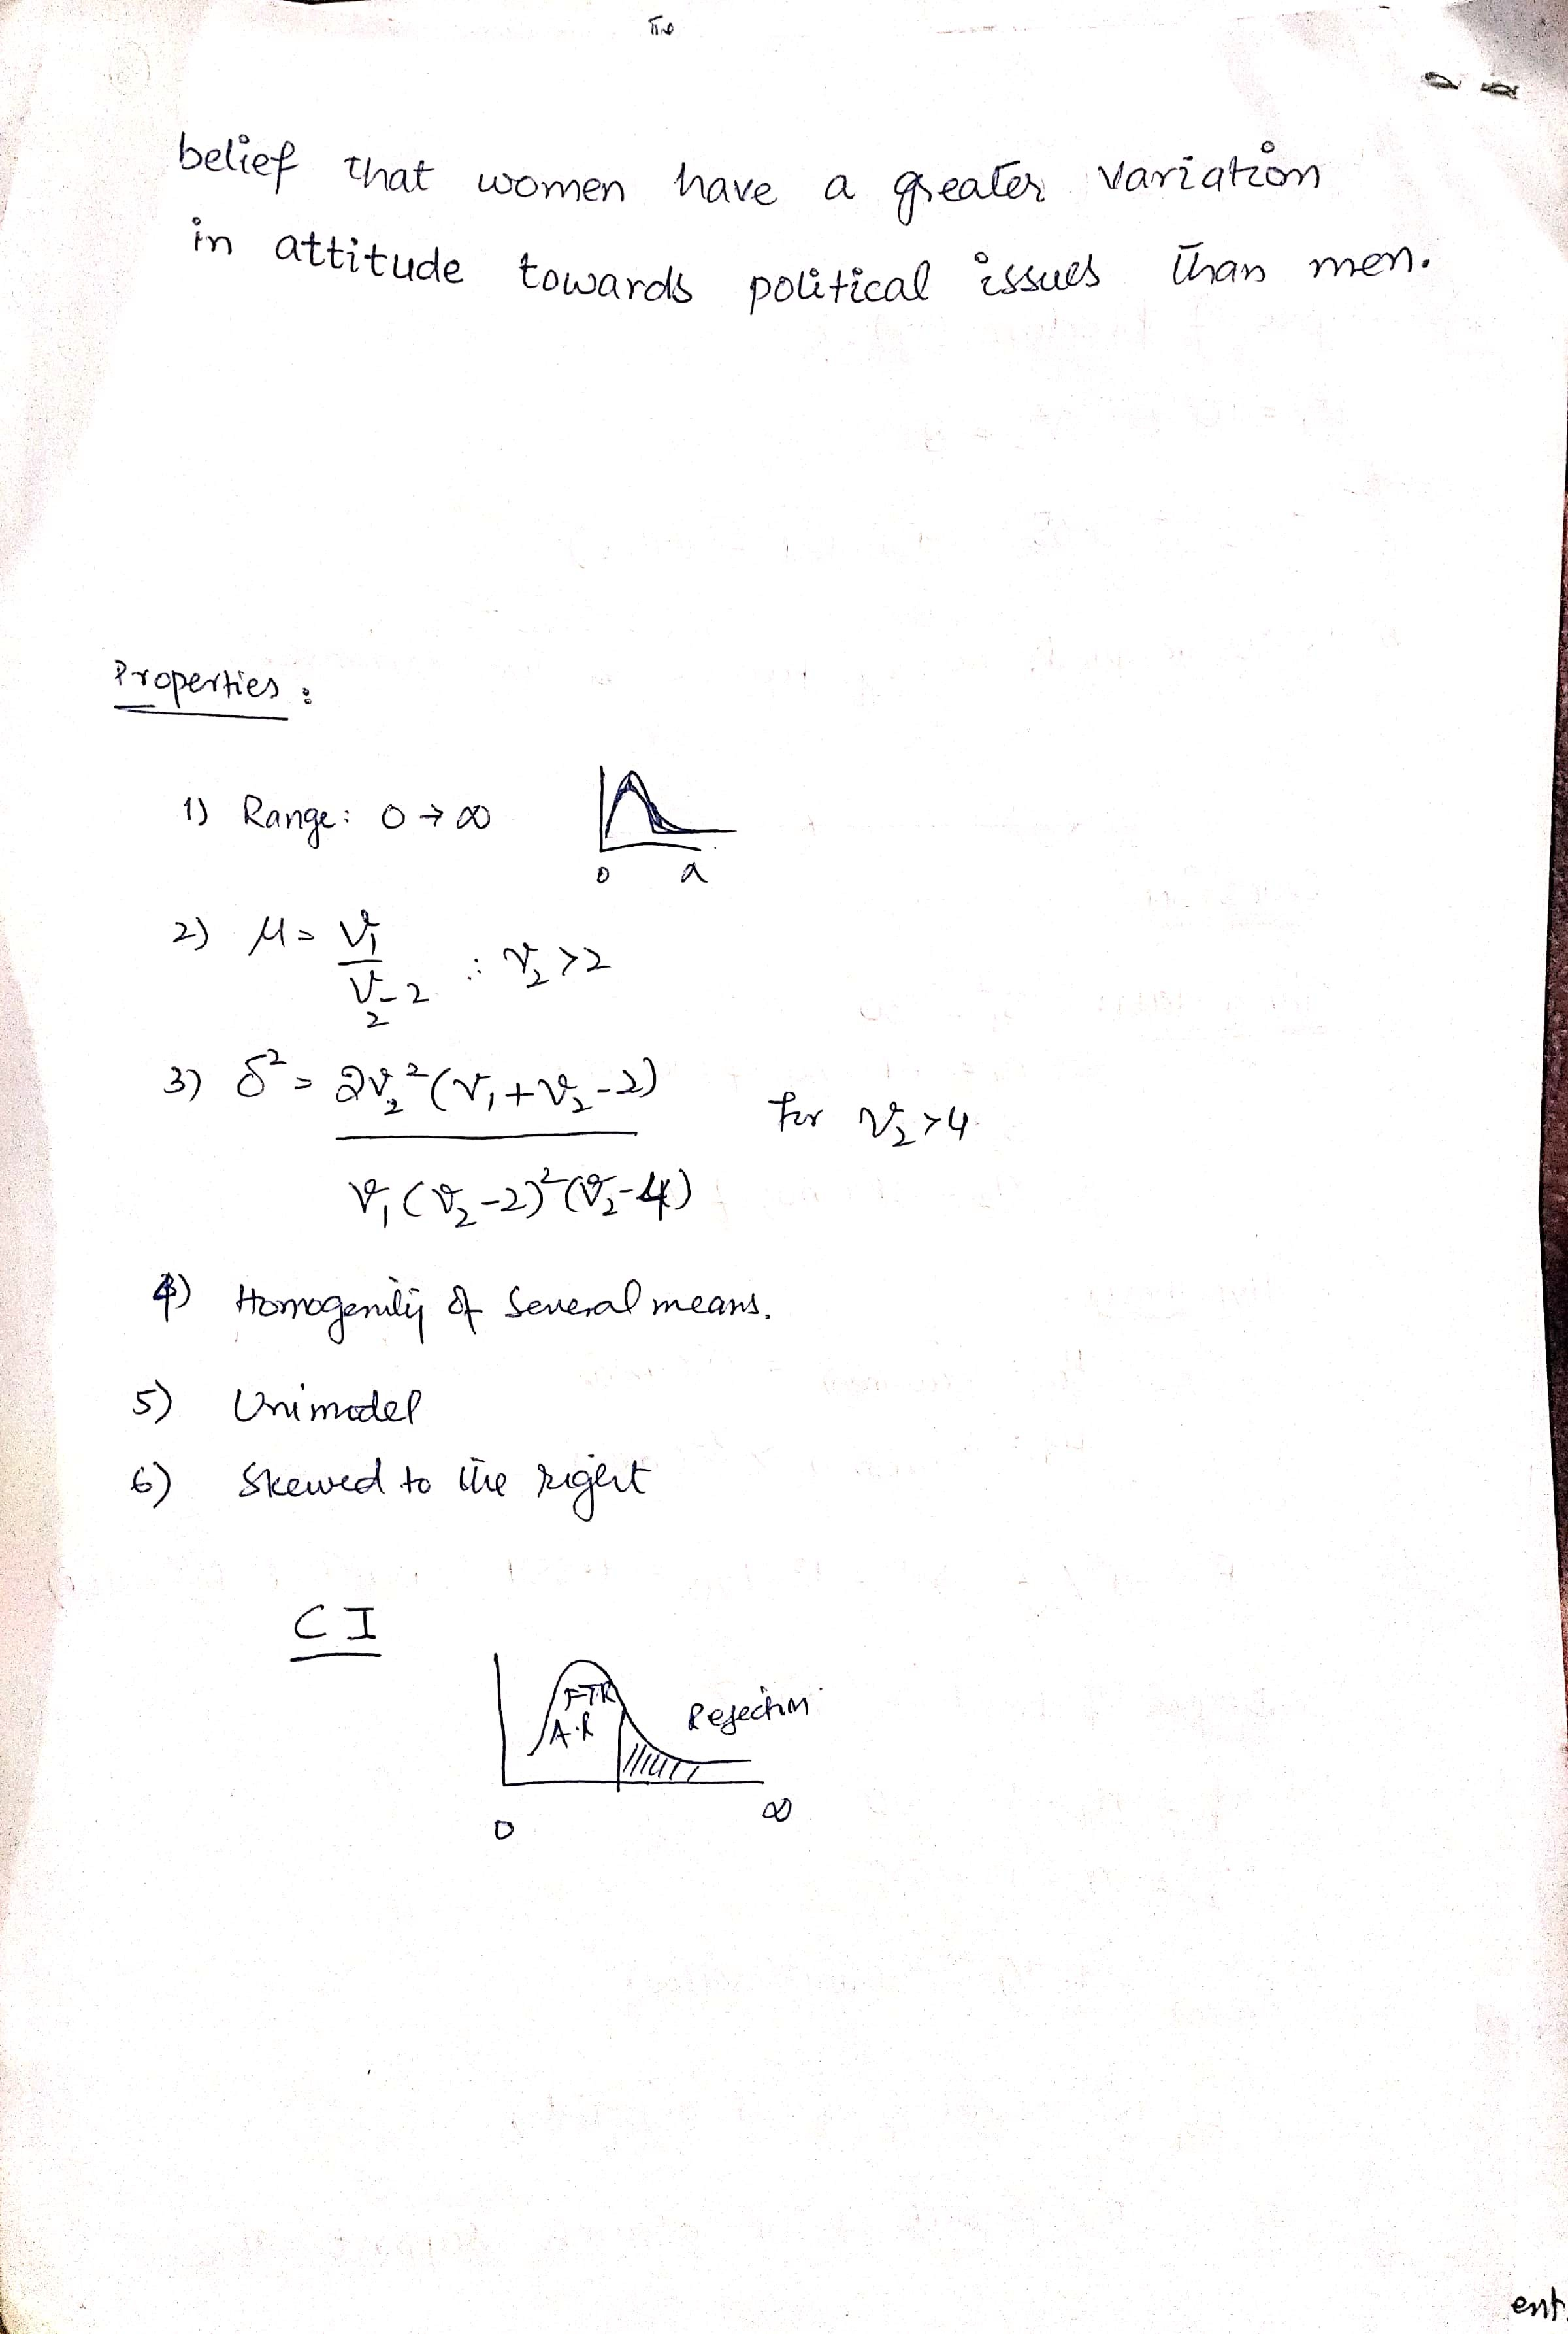 belief that women have a greater variation
in attitude towards political issues than men.
Properties :
1) Range: 0 → ∞
0 a
2) μ = V₁ / V₂ - 2 ∴ V₂ > 2
3) δ² = 2V₂² (V₁ + V₂ - 2) / V₁ (V₂ - 2)² (V₂ - 4) for V₂ > 4
4) Homogenity of Several means.
5) Unimodel
6) Skewed to the right
CI
FTR
A.R
Rejection
0 ∞
ent